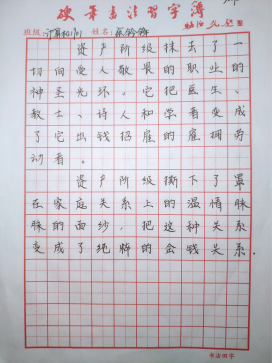 硬笔书法习字簿
班级:计算机 姓名:
资产阶级抹去了一
切向受人敬畏的职业的
神圣光环。它把医生、
教士、诗人和学者变成
了它出钱招雇的雇佣劳
动者。
资产阶级撕下了罩
在家庭关系上的温情脉
脉的面纱,把这种关系
变成了纯粹的金钱关系.
书法田字